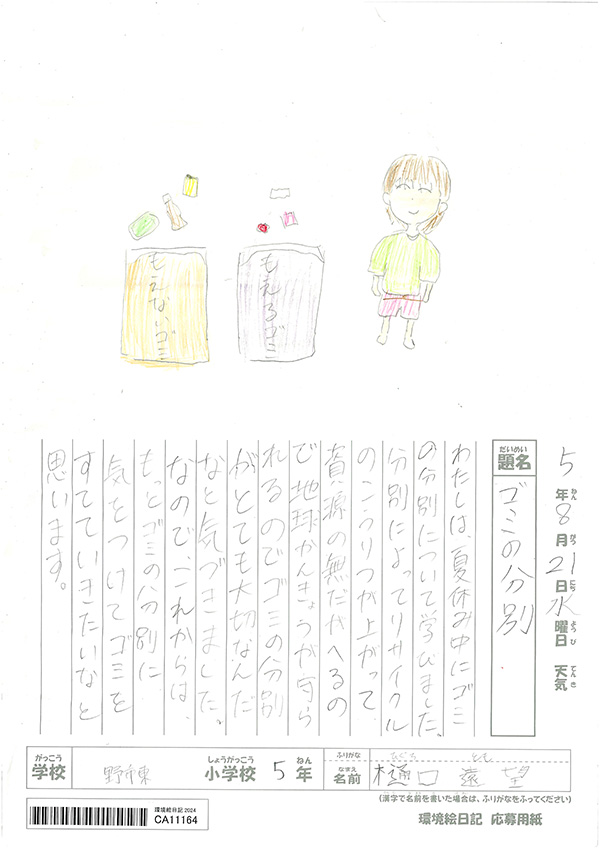 もえないゴミ
もえるゴミ
5年8月21日水曜日 天気
ねん がつ にち ようび てんき
だいめい
題名
ゴミの分別
わたしは、夏休み中にゴミ
の分別について学びました。
分別によってリサイクル
のこうりつが上がって、
資源の無だがへるの
で地球かんきょうが守ら
れるのでゴミの分別
がとても大切なんだ
なと気づきました。
なので、これからは、
もっとゴミの分別に
気をつけてゴミを
すてていきたいなと
思います。
がっこう
学校
しょうがっこう ねん
小学校 5年
ふりがな
なまえ
名前
樋口 遠望
(漢字で名前を書いた場合は、ふりがなをふってください)
環境絵日記 2024
CA11164
環境絵日記 応募用紙